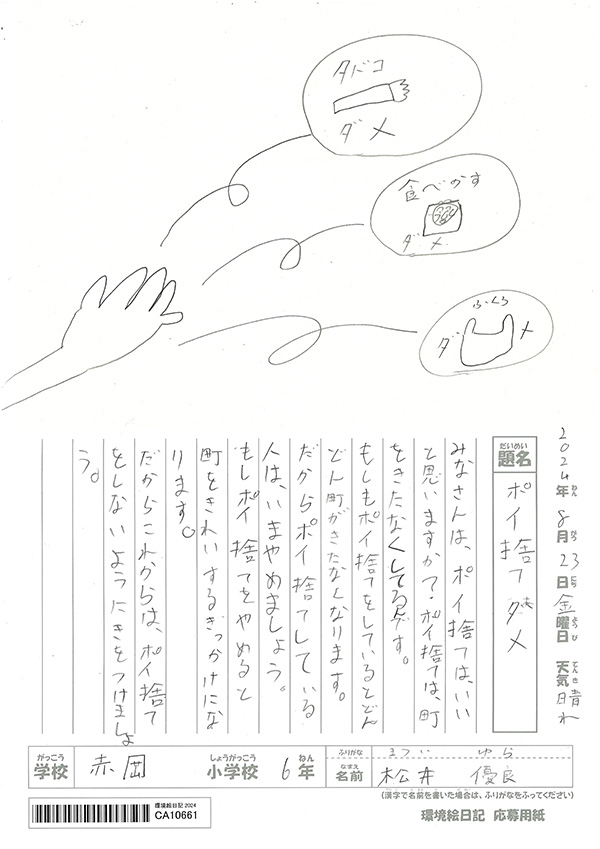 タバコ
ダメ
食べかす
ダメ
ふくろ
ダメ
2024年ねん8月がつ23日にち金曜日ようび天気てんき晴れ
だいめい
題名
ポイ捨てダメ
みなさんは、ポイ捨ては、いい
と思いますか？ポイ捨ては、町
をきたなくしてるゲす。
もしもポイ捨てをしているとどん
どん町がきたなくなります。
だからポイ捨てしている
人は、いまやめましょう。
もしポイ捨てをやめると
町をきれいするきっかけにな
ります。
だからこれからは、ポイ捨て
をしないようにきをつけましょ
う。
がっこう しょうがっこう ねん
学校 赤岡 小学校 6年
ふりがな まつい ゆら
なまえ
名前 松井 優良
(漢字で名前を書いた場合は、ふりがなをふってください)
環境絵日記 応募用紙
環境絵日記2024
CA10661